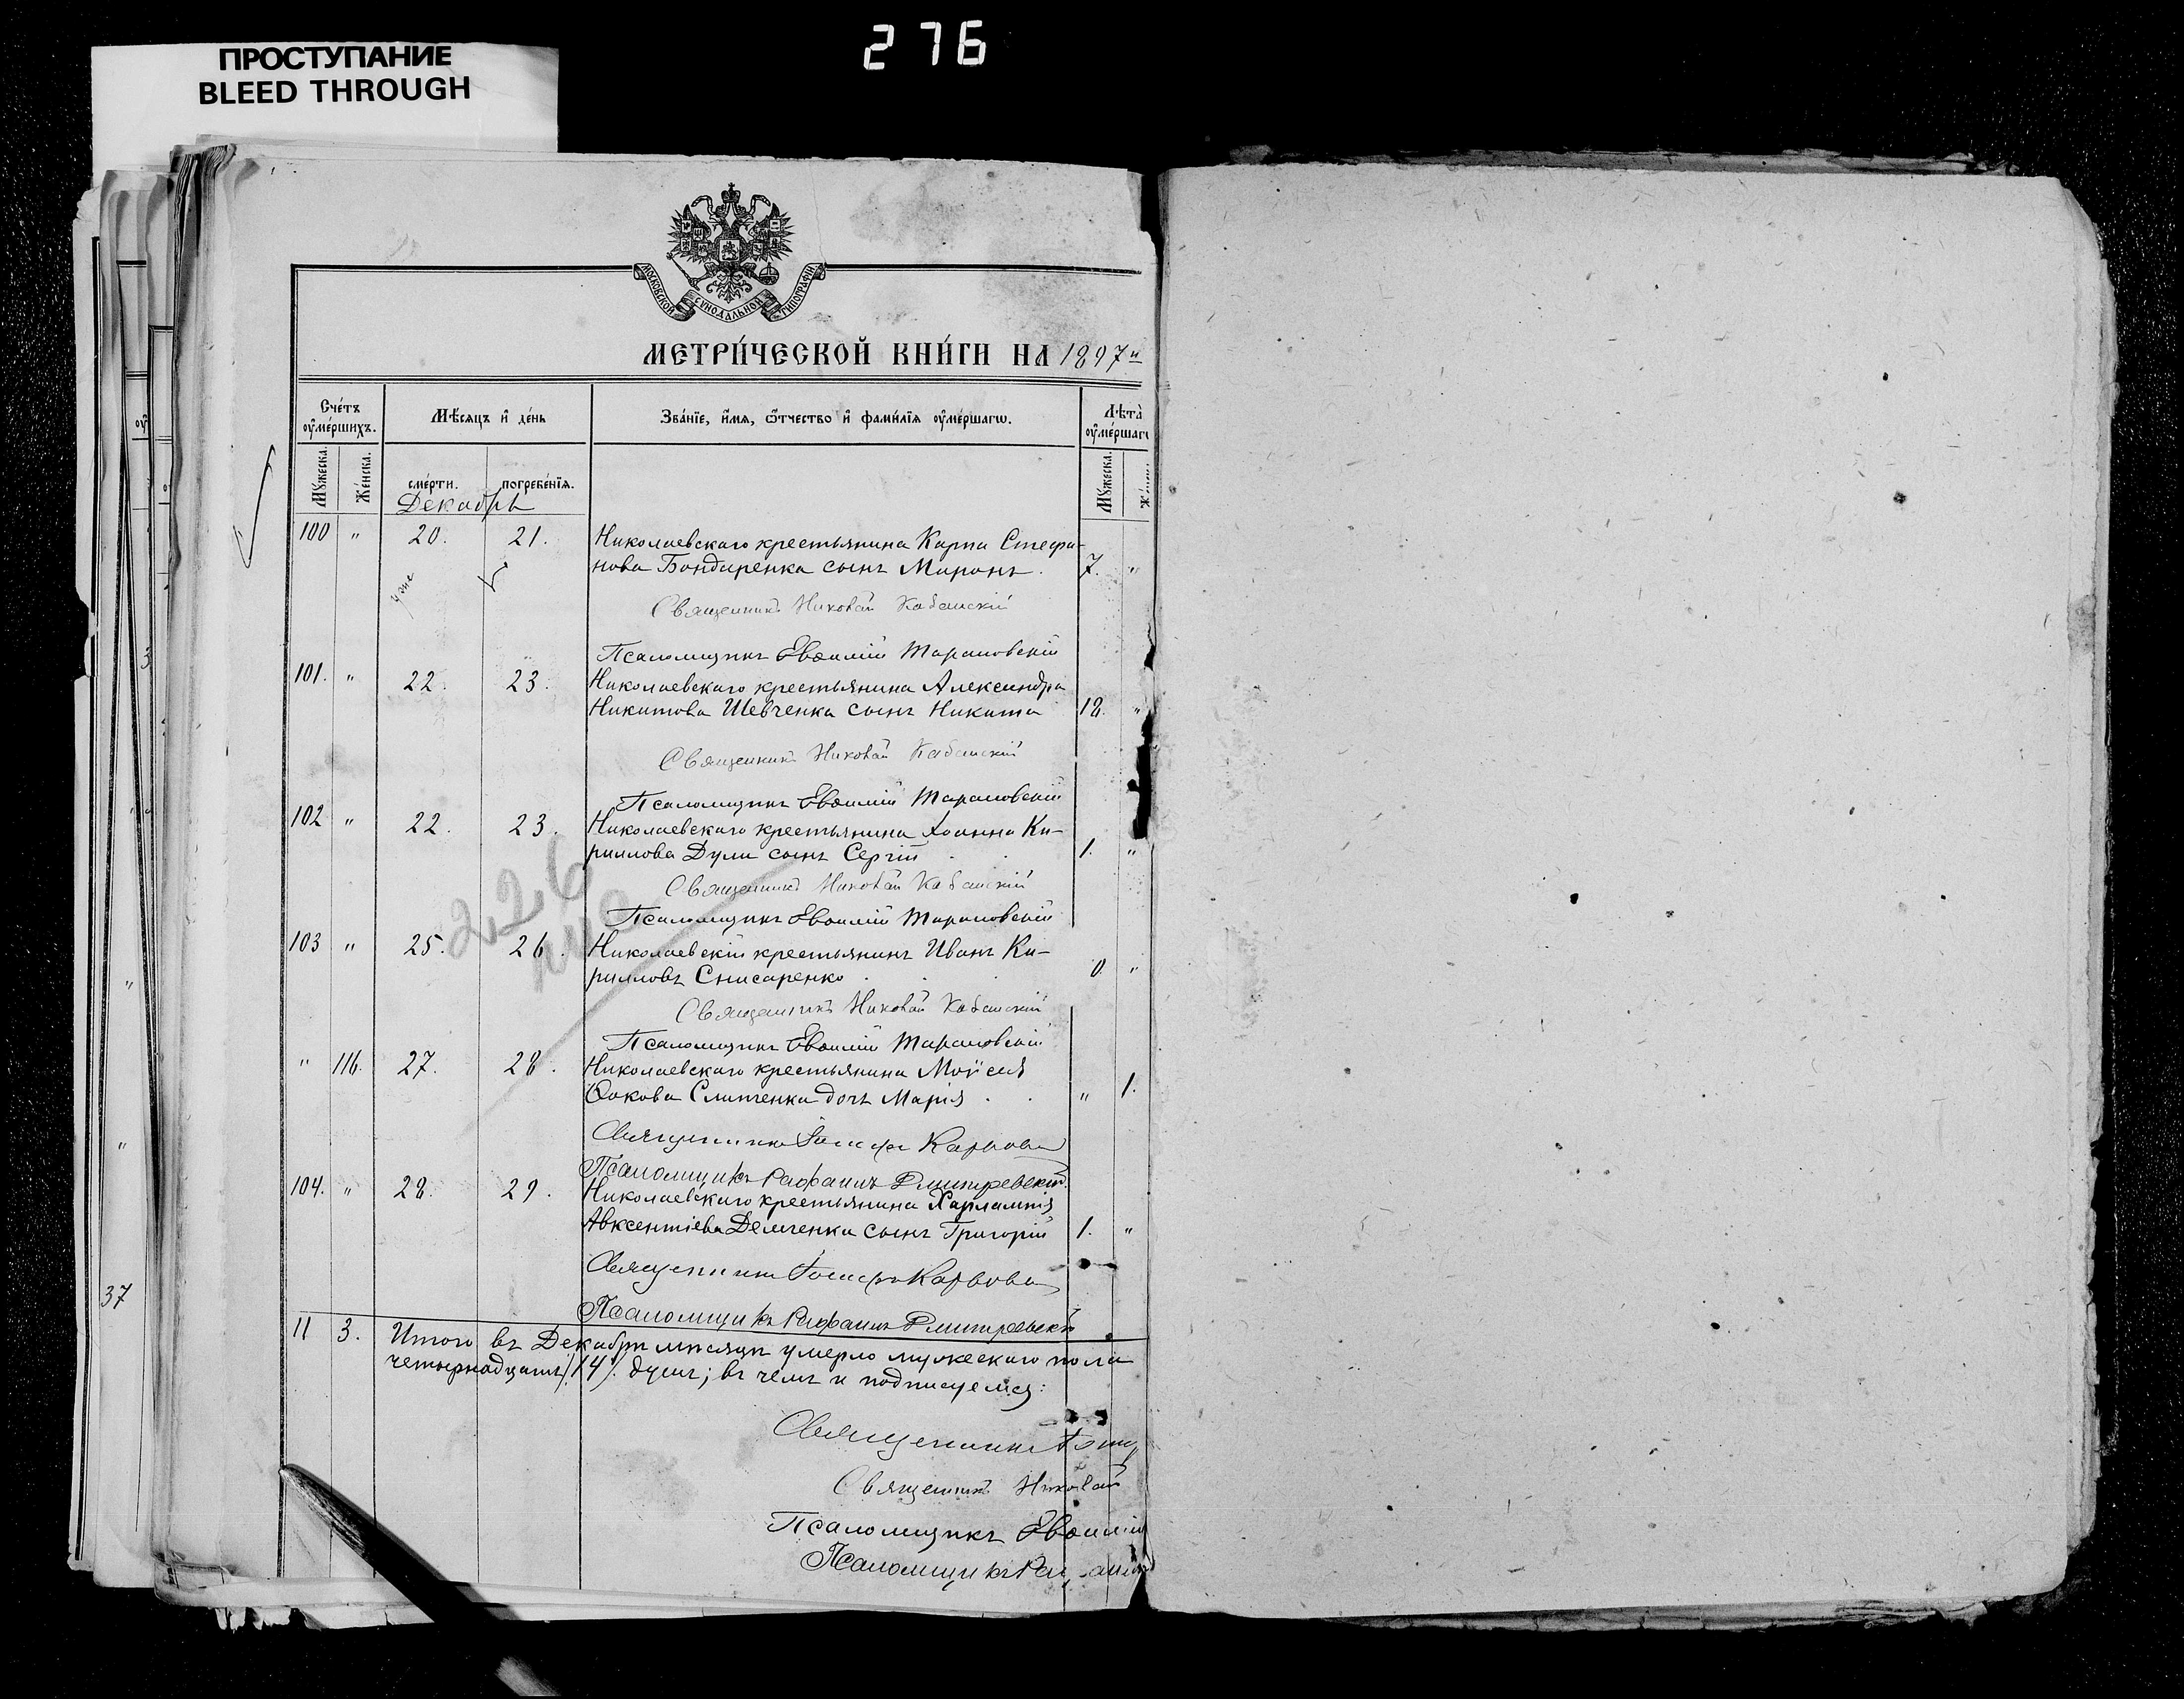 276
ПРОСТУПАНИЕ
BLEED THROUGH
МОСКОВСКОЙ СѴНОДАЛЬНОЙ ТИПОГРАФІИ
МЕТРИ́ЧЕСКОЙ КНИ́ГИ НА 1897
Сче́тъ ᲂу҆ме́ршихъ. Мѣ́сяцъ и҆ де́нь Зва́нїе, и҆́мѧ, ѻ҆́тчество и҆ фами́лїѧ ᲂу҆ме́ршагѡ. Лѣта̀
Мꙋ́жеска. Же́нска. сме́рти. погребе́нїѧ. Мꙋ́жеска.
Декабрь
100 " 20. 21. Николаевскаго крестьянина Карпа Стефа-
нова Бондаренка сынъ Миронъ. 7. "
Священникъ Николай
Псаломщикъ Евѳимій Тарановскій
101. " 22. 23. Николаевскаго крестьянина Александра
Никитова Шевченка сынъ Никита 18. "
Священникъ Николай
Псаломщикъ Евѳимій Тарановскій
102 " 22. 23. Николаевскаго крестьянина Іоанна Ки-
риллова Дули сынъ Сергій 1. "
Священникъ Николай
Псаломщикъ Евѳимій Тарановскій
226
103 " 25. 26. Николаевскій крестьянинъ Иванъ Ки-
рилловъ Снисаренко "
Священникъ Николай
Псаломщикъ Евѳимій Тарановскій
" 116. 27. 28. Николаевскаго крестьянина Моѵсея
дочь Марія " 1.
Священникъ
Псаломщикъ Рафаилъ Дмитревскій
104. " 28. 29. Николаевскаго крестьянина Харлампія
Авксентіева Демченка сынъ Григорій 1. "
Священникъ
Псаломщикъ Рафаилъ Дмитревскій
11 3. Итого въ Декабрѣ мѣсяцѣ умерло мужескаго пола
четырнадцать /14/ душъ; въ чемъ и подписуемся:
Священникъ
Священникъ Николай
Псаломщикъ Евѳимій
Псаломщикъ
37